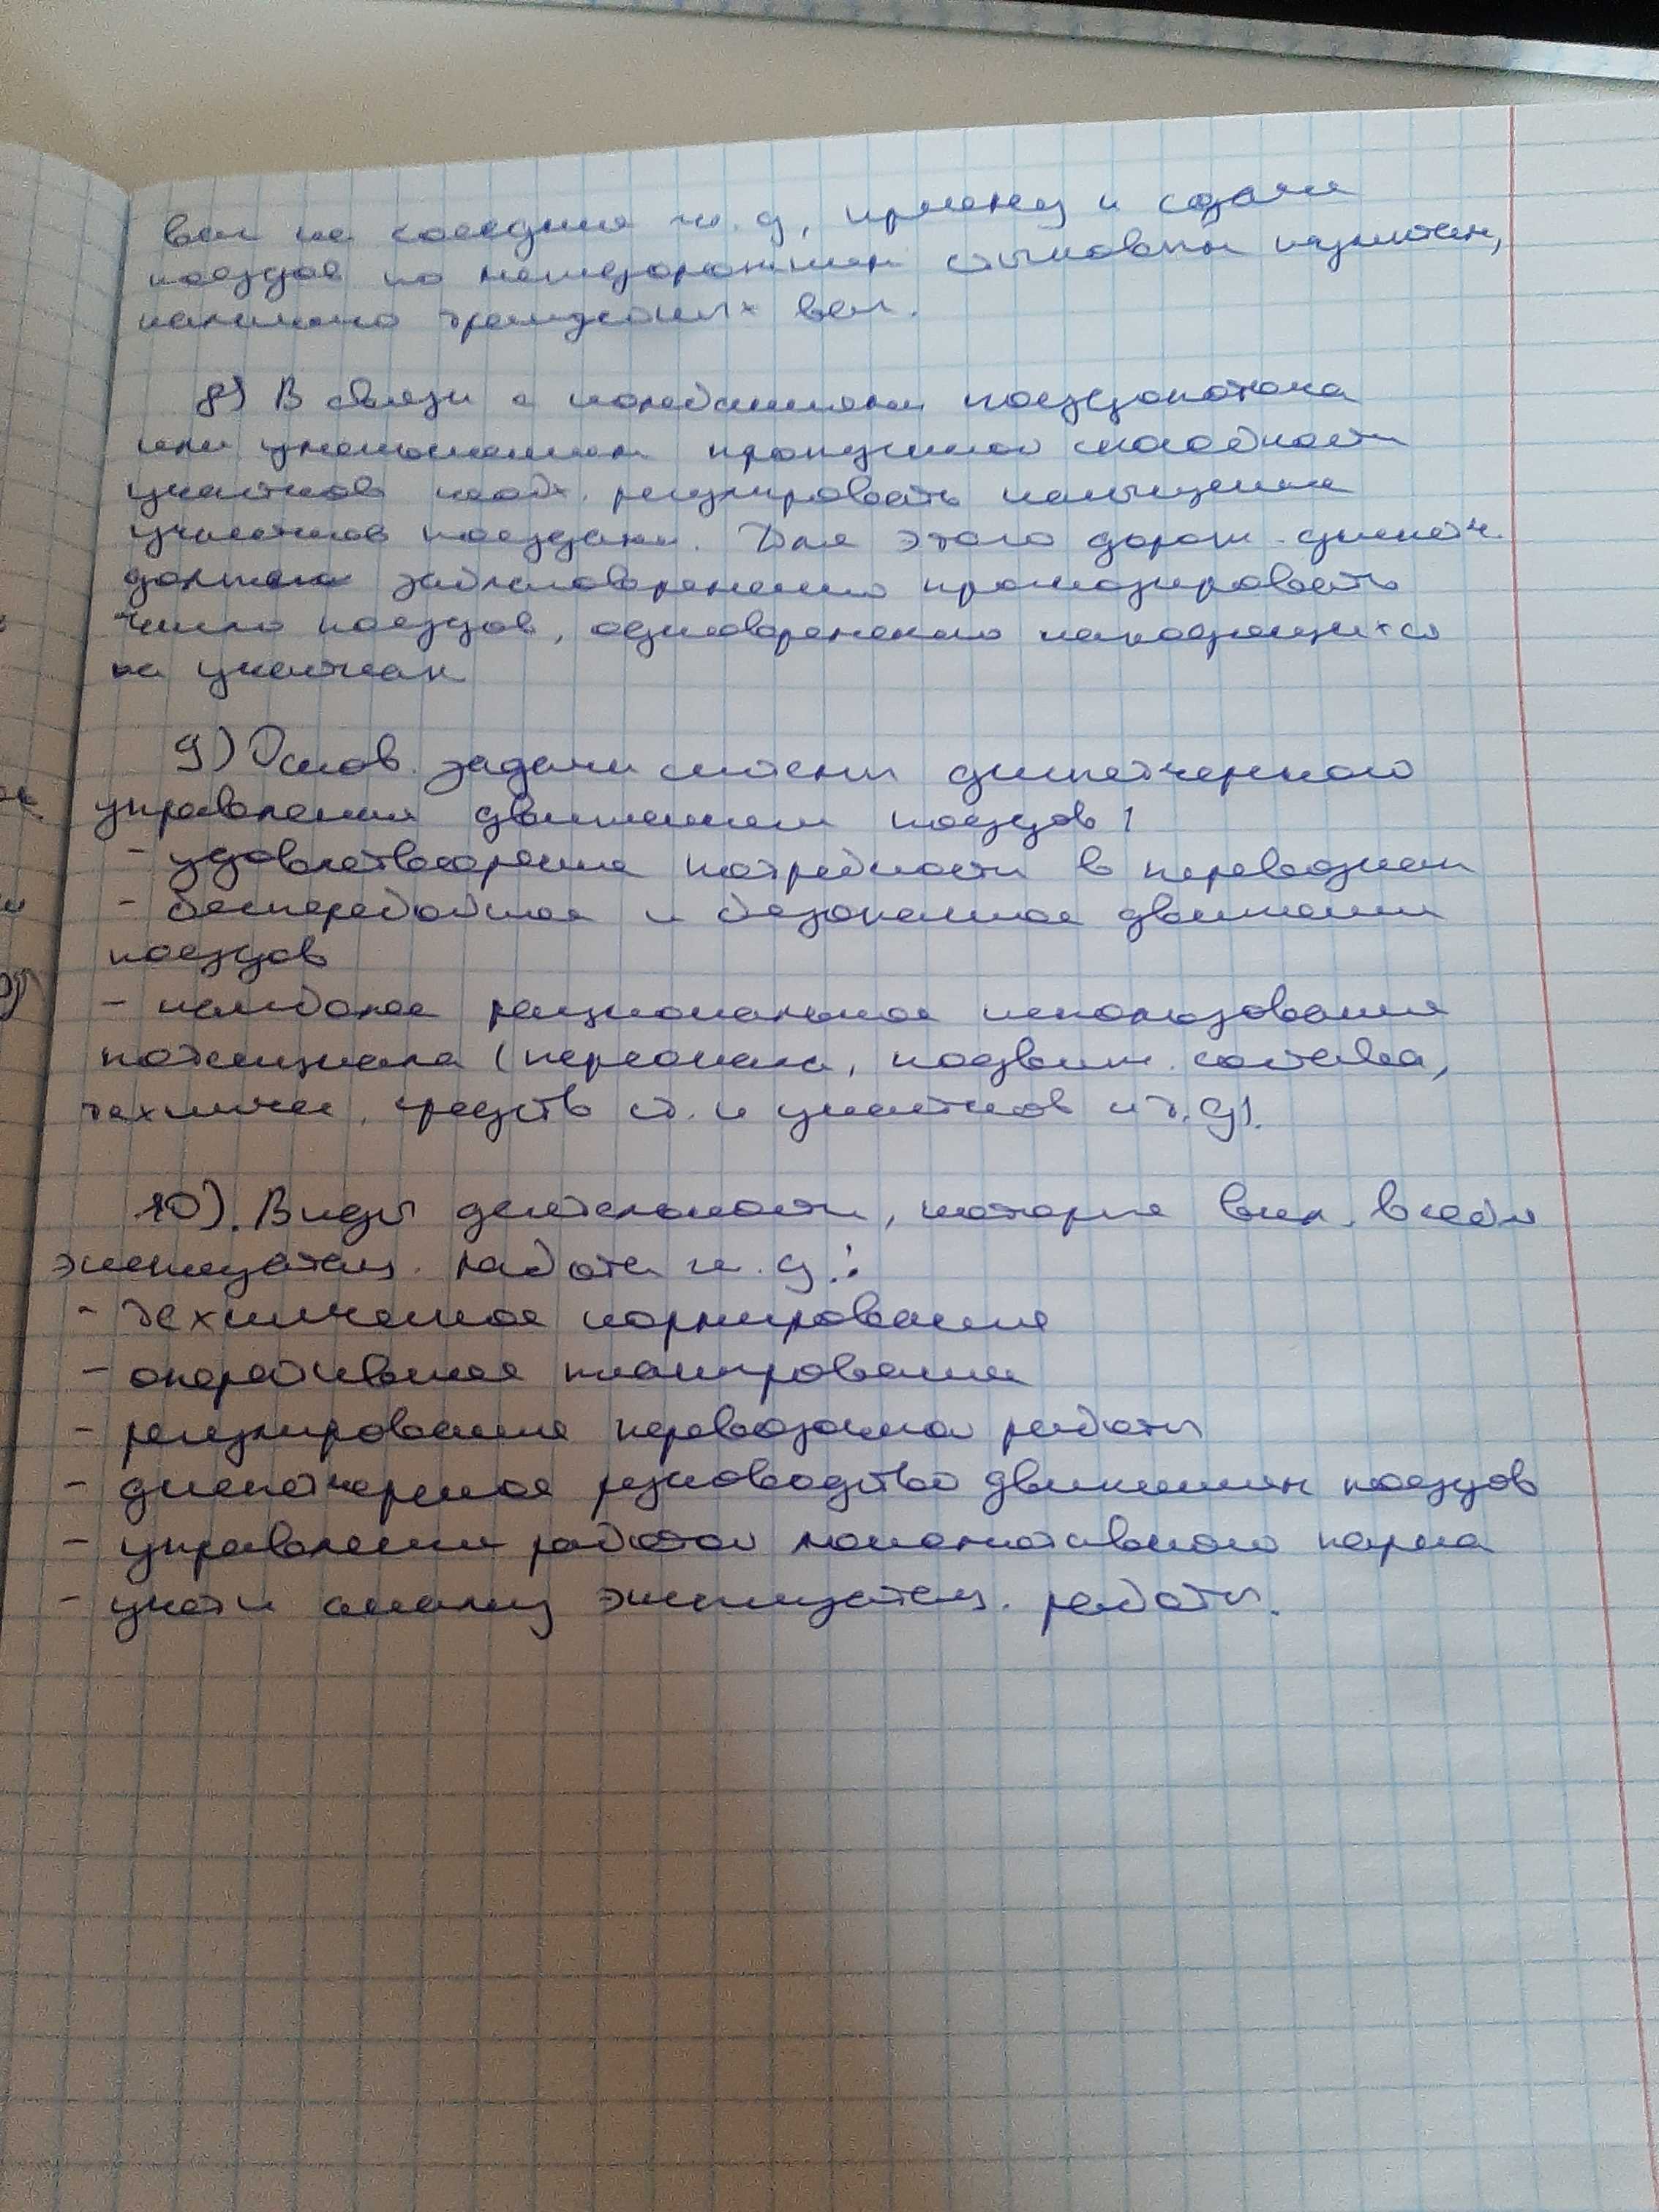 ваг. на соседние ж.д, приему и сдачи
поездов по междорожным стыковым пунктам,
наличию транзитных ваг.
8) В связи с колебаниями поездопотока
или уменьшением пропускной способности
участков необх. регулировать насыщение
участков поездами. Для этого дорож. диспетч.
должен заблаговременно прогнозировать
число поездов, одновременно находящихся
на участках
9) Основ. задачи системы диспетчерского
управления движением поездов:
- удовлетворение потребности в перевозках
- бесперебойное и безопасное движение
поездов
- наиболее рациональное использование
потенциала (персонала, подвиж. состава,
техничес. средств ст. и участков и т.д).
10). Виды деятельности, которые вкл. в себя
эксплуатац. работа ж.д.:
- техническое нормирование
- оперативное планирование
- регулирование перевозочной работы
- диспетчерское руководство движением поездов
- управление работой локомотивного парка
- учет и анализ эксплуатац. работы.